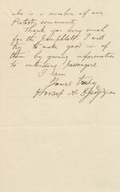 who is a number of our
Protesty community
Thank you very much
for the pamphlets. I will
try to make good use of
them by giving information
to intending passengers.
I am
Yours truly
Horsep A.